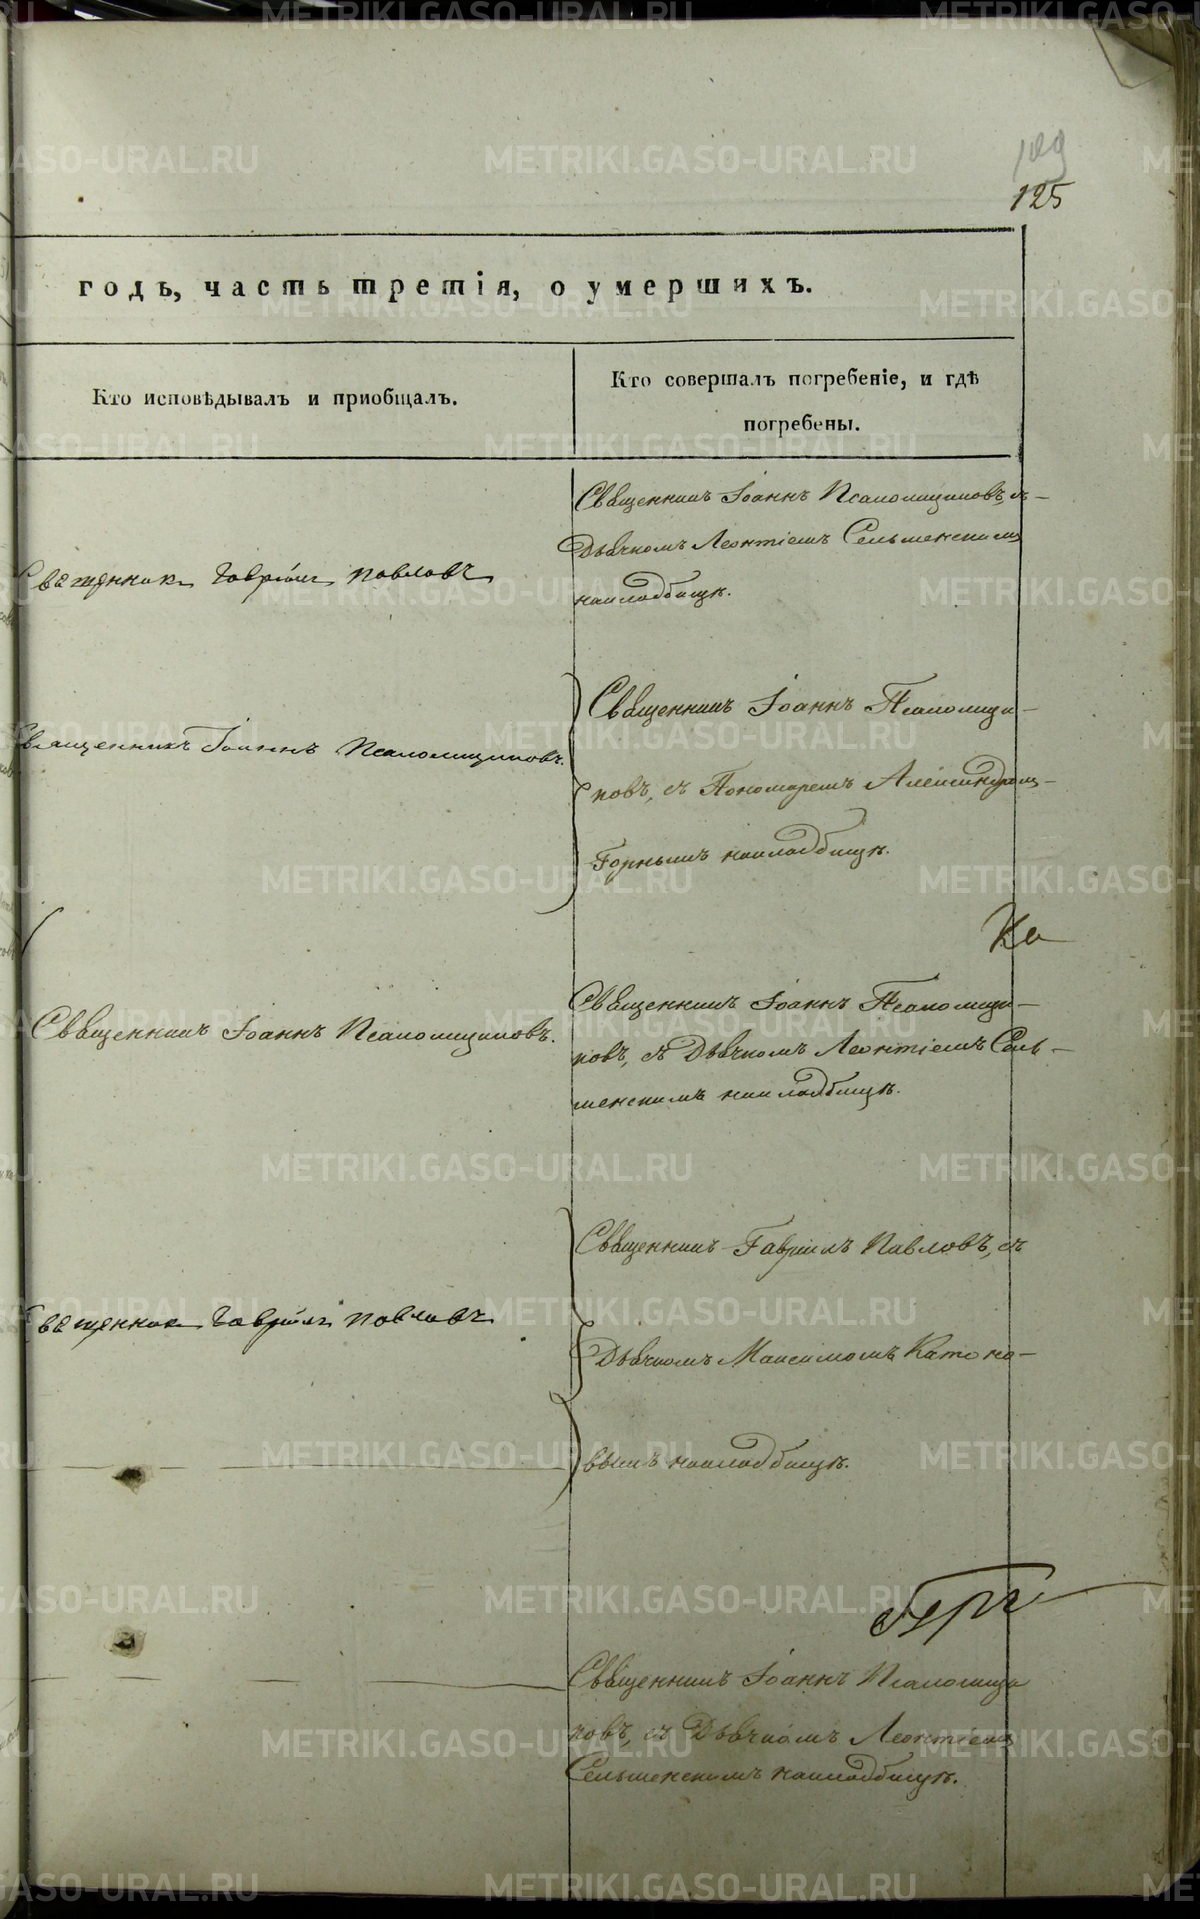 109
125
годъ, часть третія, о умершихъ.
Кто исповѣдывалъ и приобщалъ.
Кто совершалъ погребеніе, и гдѣ
погребены.
Священникъ Іоаннъ Псаломщиковъ, съ
Дьячкомъ Леонтіемъ Сельменскимъ
накладбищѣ.
Священникъ Гавріилъ Павловъ
Священникъ Іоаннъ Псаломщи-
ковъ, съ Пономаремъ Александромъ
Горнымъ накладбищѣ.
Священникъ Іоаннъ Псаломщиковъ.
Ка
Священникъ Іоаннъ Псаломщи-
ковъ, съ Дьячкомъ Леонтіемъ Сель-
менскимъ накладбищѣ.
Священникъ Іоаннъ Псаломщиковъ.
Священникъ Гавріилъ Павловъ, съ
Дьячкомъ Максимомъ Катоно-
вымъ накладбищѣ.
Священникъ Гавріилъ Павловъ
Священникъ Іоаннъ Псаломщи
ковъ, съ Дьячкомъ Леонтіемъ
Сельменскимъ накладбищѣ.
METRIKI.GASO-URAL.RU